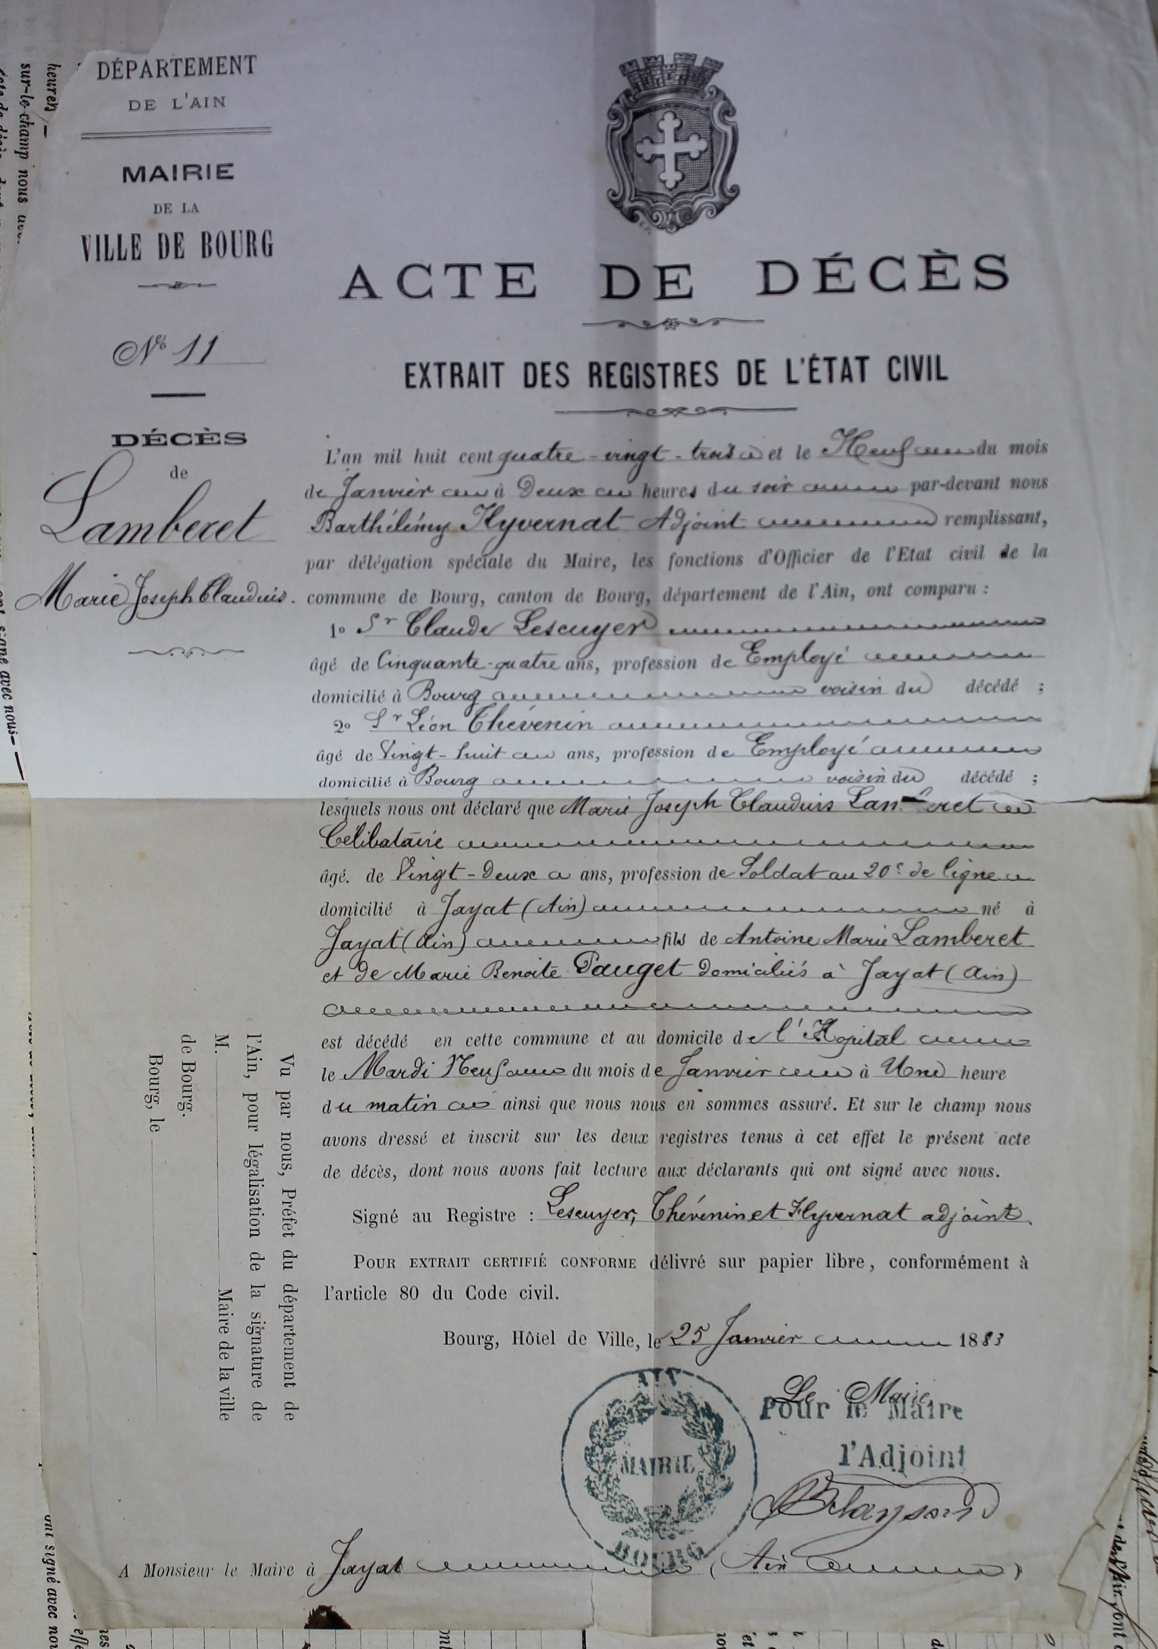 DÉPARTEMENT
DE L'AIN
MAIRIE
DE LA
VILLE DE BOURG
N° 11
DÉCÈS
de
Lamberet
Marie Joseph Claudius.
ACTE DE DÉCÈS
EXTRAIT DES REGISTRES DE L'ÉTAT CIVIL
L'an mil huit cent quatre-vingt-trois et le Neuf du mois
de Janvier à Deux heures du soir par-devant nous
Barthélémy Hyvernat Adjoint remplissant,
par délégation spéciale du Maire, les fonctions d'Officier de l'Etat civil de la
commune de Bourg, canton de Bourg, département de l'Ain, ont comparu :
1° Sr Claude Lescuyer
âgé de Cinquante-quatre ans, profession de Employé
domicilié à Bourg voisin du décédé ;
2° Sr Léon Thévenin
âgé de Vingt-huit ans, profession de Employé
domicilié à Bourg voisin du décédé ;
lesquels nous ont déclaré que Marie Joseph Claudius Lamberet
Célibataire
âgé. de Vingt-Deux ans, profession de Soldat au 20e de ligne
domicilié à Jayat (Ain) né à
Jayat (Ain) fils de Antoine Marie Lamberet
et de Marie Benoite Pauget domiciliés à Jayat (Ain)
est décédé en cette commune et au domicile de l'Hopital
le Mardi Neuf du mois de Janvier à Une heure
du matin ainsi que nous nous en sommes assuré. Et sur le champ nous
avons dressé et inscrit sur les deux registres tenus à cet effet le présent acte
de décès, dont nous avons fait lecture aux déclarants qui ont signé avec nous.
Signé au Registre : Lescuyer, Thévenin et Hyvernat adjoint.
POUR EXTRAIT CERTIFIÉ CONFORME délivré sur papier libre, conformément à
l'article 80 du Code civil.
Bourg, Hôtel de Ville, le 25 Janvier 1883
Le Maire
Pour le Maire
l'Adjoint
AIN
MAIRIE
BOURG
Vu par nous, Préfet du département de
l'Ain, pour légalisation de la signature de
M. Maire de la ville
de Bourg.
Bourg, le
A Monsieur le Maire à Jayat (Ain)
heures
sur-le-champ nous
signé avec nous